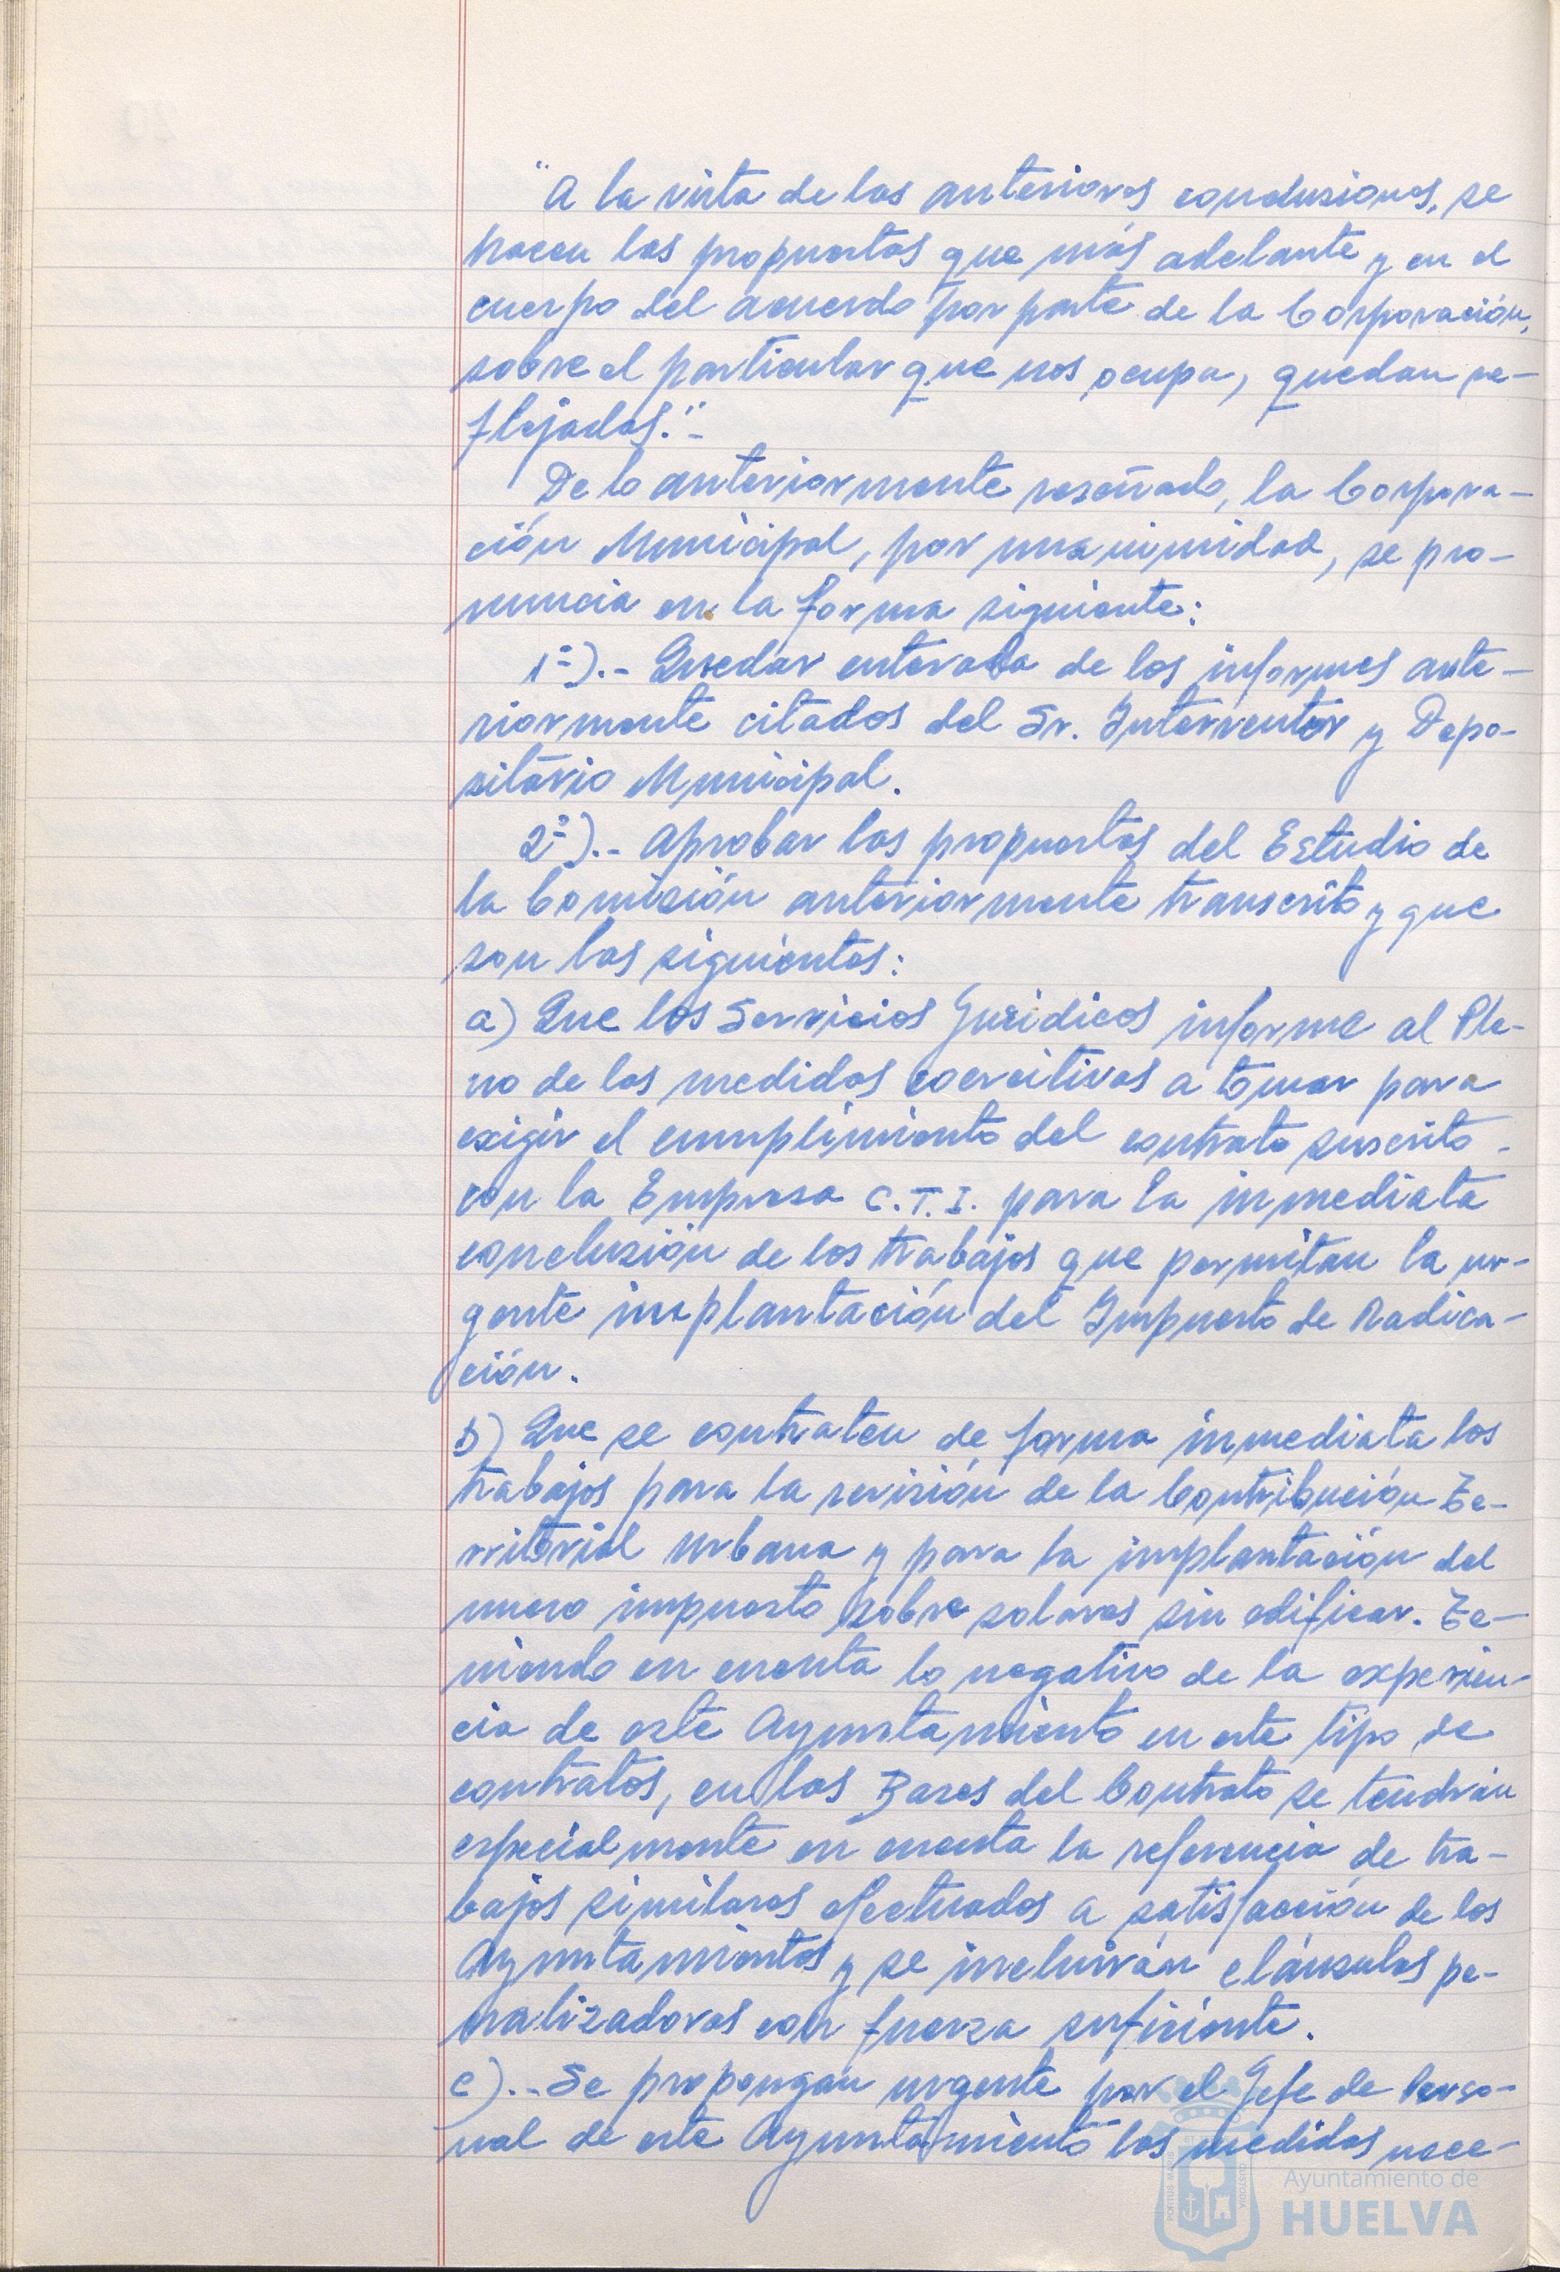 "A la vista de las anteriores conclusiones, se
hacen las propuestas que más adelante y en el
cuerpo del acuerdo por parte de la Corporación,
sobre el particular que nos ocupa, quedan re-
flejadas."-
De lo anteriormente reseñado, la Corpora-
ción Municipal, por unanimidad, se pro-
nuncia en la forma siguiente:
1º).- Quedar enterada de los informes ante-
riormente citados del Sr. Interventor y Depo-
sitario Municipal.
2º).- Aprobar las propuestas del Estudio de
la Comisión anteriormente transcrito y que
son las siguientes:
a) Que los Servicios Jurídicos informe al Ple-
no de las medidas coercitivas a tomar para
exigir el cumplimiento del contrato suscrito -
con la Empresa C.T.I. para la inmediata
conclusión de los trabajos que permitan la ur-
gente implantación del Impuesto de Radica-
ción.
b) Que se contraten de forma inmediata los
trabajos para la revisión de la Contribución Te-
rritorial Urbana y para la implantación del
nuevo impuesto sobre solares sin edificar. Te-
niendo en cuenta lo negativo de la experien-
cia de este Ayuntamiento en este tipo de
contratos, en las Bases del Contrato se tendrán
especialmente en cuenta la referencia de tra-
bajos similares efectuados a satisfacción de los
Ayuntamientos y se incluirán cláusulas pe-
nalizadoras con fuerza suficiente.
c).- Se propongan urgente por el Jefe de Perso-
nal de este Ayuntamiento las medidas nece-
Ayuntamiento de
HUELVA